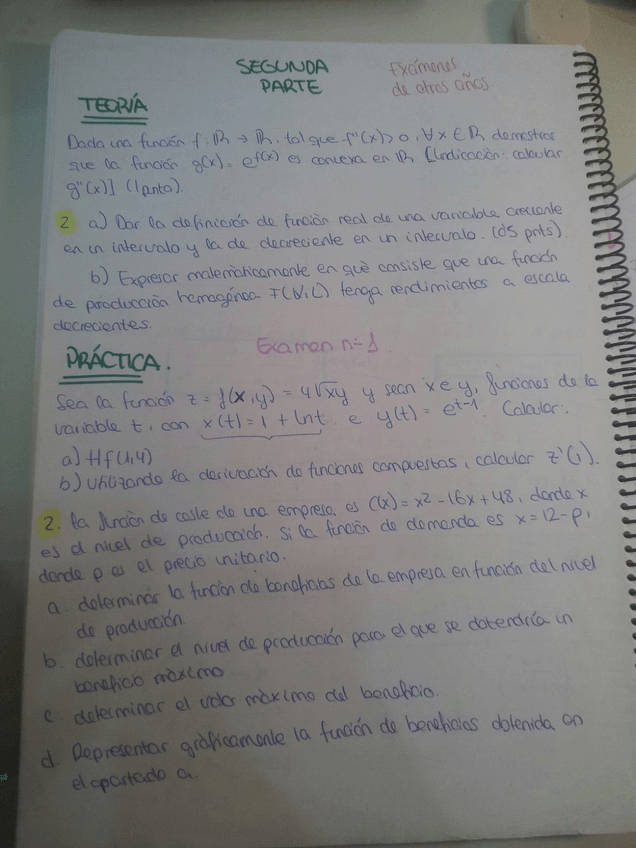 SEGUNDA
PARTE
Exámenes
de otros años
TEORÍA
Dada una función f: ℝ → ℝ, tal que f''(x)>0, ∀x ∈ ℝ demostrar
que la función g(x)= e^f(x) es convexa en ℝ [Indicación: calcular
g''(x)] (1 punto).
2. a) Dar la definición de función real de una variable creciente
en un intervalo y la de decreciente en un intervalo. (0'5 pnts).
b) Expresar matemàticamente en què consiste que una función
de producción homogénea F(K,L) tenga rendimientos a escala
decrecientes.
Examen nº 1
PRÁCTICA.
Sea la función z = f(x,y) = 4√xy y sean x e y, funciones de la
variable t, con x(t) = 1 + lnt e y(t) = e^t-1. Calcular:
a) Hf(1,4)
b) utilizando la derivación de funciones compuestas, calcular z'(1).
2. la función de coste de una empresa es C(x) = x² - 16x + 48, donde x
es el nivel de producción. Si la función de demanda es x = 12 - p,
donde p es el precio unitario.
a. determinar la función de beneficios de la empresa en función del nivel
de producción.
b. determinar el nivel de producción para el que se obtendría un
beneficio màximo
c. determinar el valor màximo del beneficio.
d. Representar gràficamente la función de beneficios obtenida en
el apartado a.